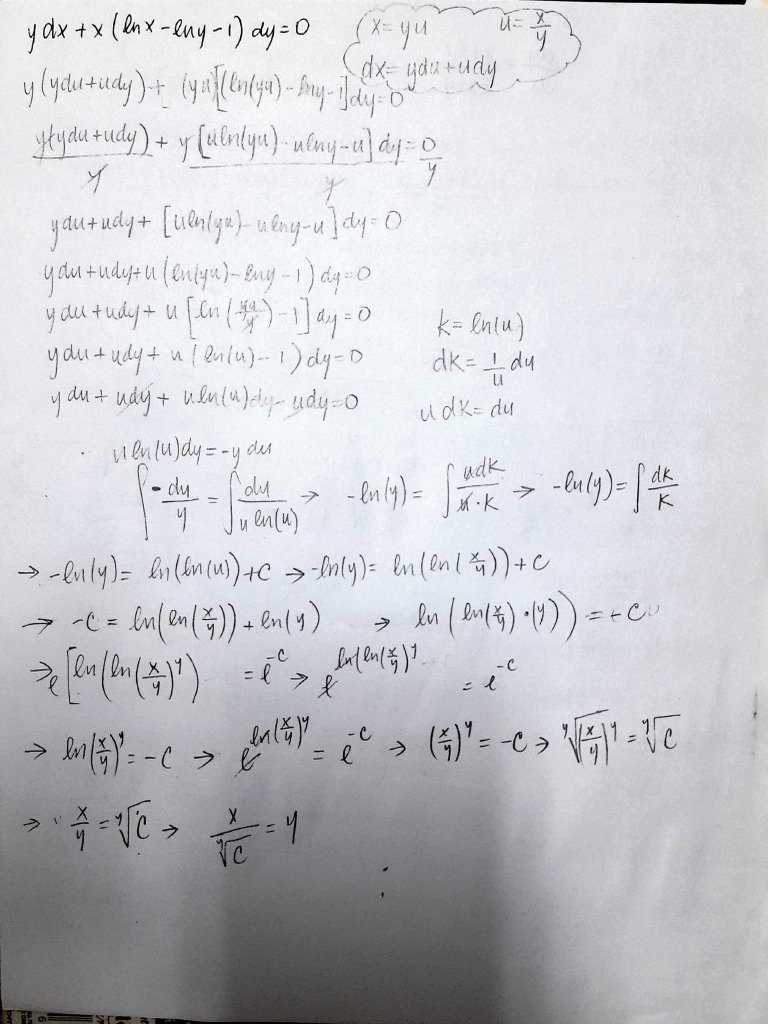 ydx + x (lnx - lny - 1) dy = 0
x = yu u = x/y
dx = ydu + udy
y (ydu + udy) + (yu)[(ln(yu) - lny - 1] dy = 0
y(ydu + udy)/y + y [uln(yu) - ulny - u] dy/y = 0/y
ydu + udy + [uln(yu) - ulny - u] dy = 0
ydu + udy + u (ln(yu) - lny - 1) dy = 0
ydu + udy + u [ln(yu/y) - 1] dy = 0 k = ln(u)
ydu + udy + u (ln(u) - 1) dy = 0 dk = 1/u du
ydu + udy + uln(u)dy - udy = 0 u dk = du
uln(u)dy = -y du
∫ -dy/y = ∫ du/u ln(u) → -ln(y) = ∫ udk/u·k → -ln(y) = ∫ dk/k
→ -ln(y) = ln(ln(u)) + c → -ln(y) = ln(ln(x/y)) + c
→ -c = ln(ln(x/y)) + ln(y) → ln(ln(x/y)·(y)) = -c
→ e^[ln(ln(x/y)^y) = e^-c → e^ln(ln(x/y)^y = e^-c
→ ln(x/y)^y = -c → e^ln(x/y)^y = e^-c → (x/y)^y = -c → ʸ√(x/y)^y = ʸ√c
→ x/y = ʸ√c → x/ʸ√c = y